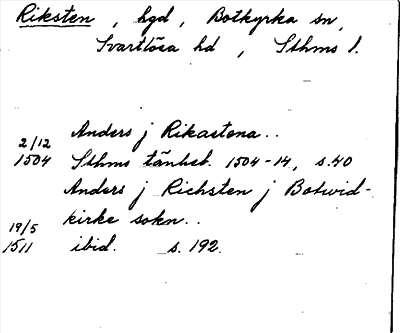 Riksten , hgd , Botkyrka sn,
Svartlösa hd , Sthms l.
Anders j Rikastena..
2/12 1504 Sthms tänkeb. 1504-14, s. 40
Anders j Richsten j Botwid-
kirke sokn..
19/5 1511 ibid. s. 192.